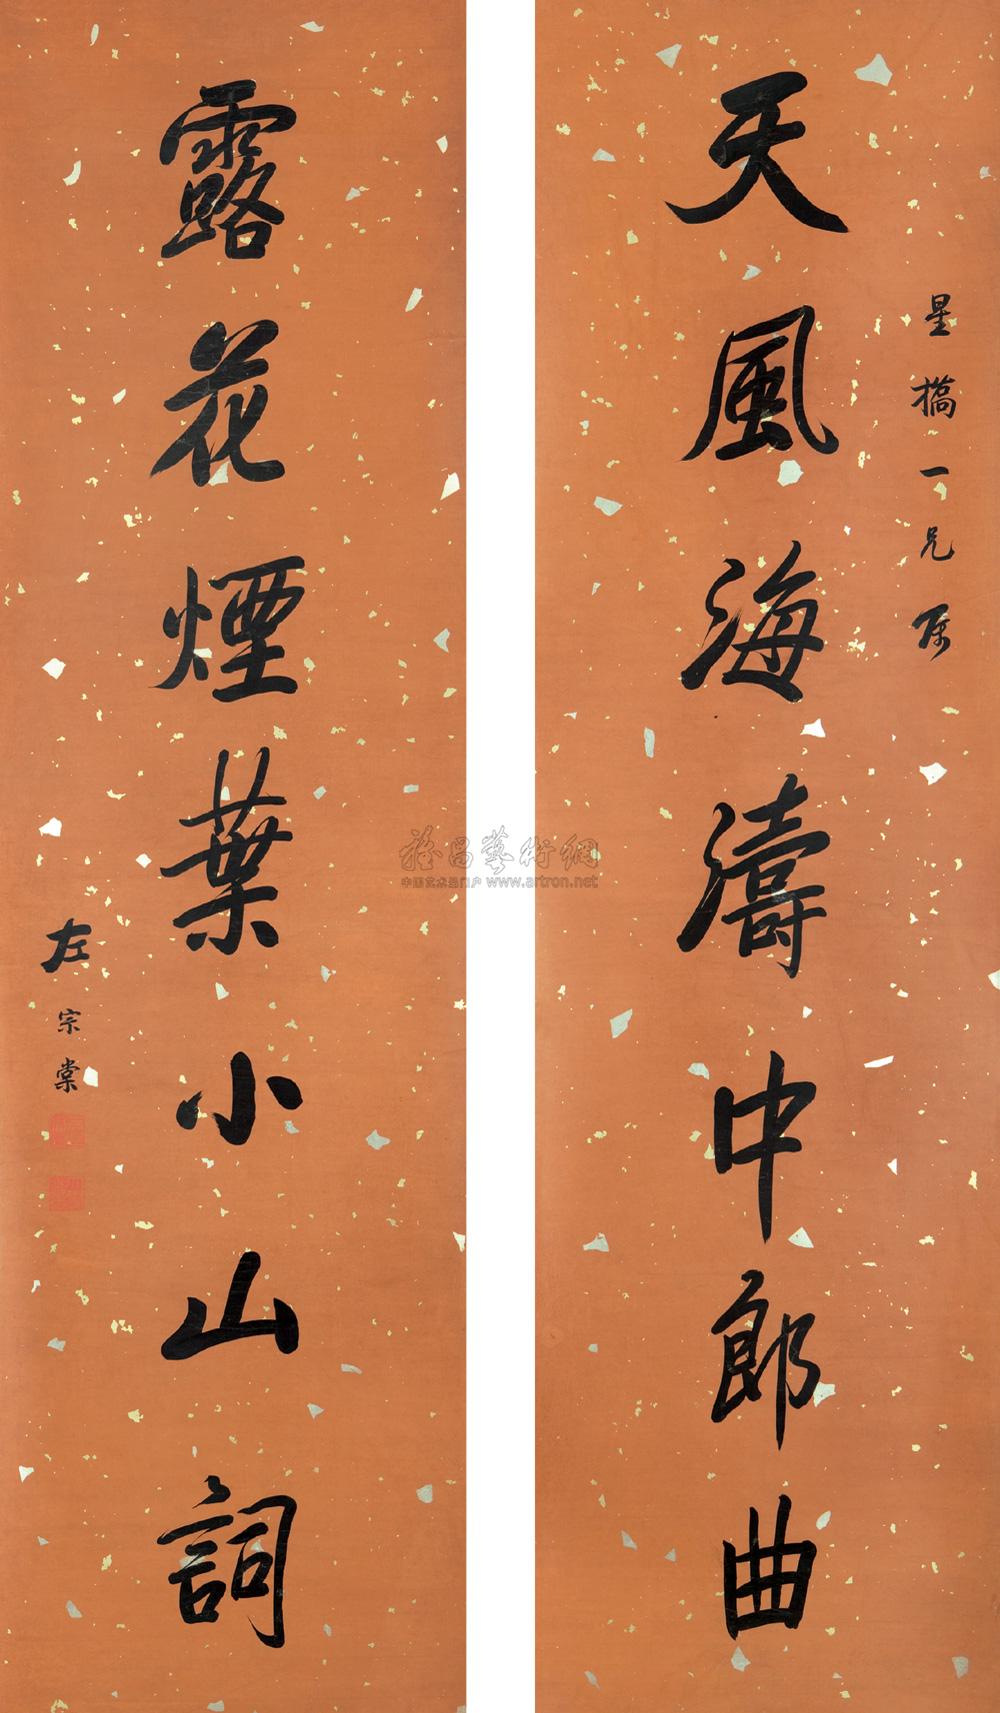 星橋一兄屬
天風海濤中郎曲
露花煙葉小山詞
左宗棠
雅昌藝術網
中国艺术品门户 www.artron.net